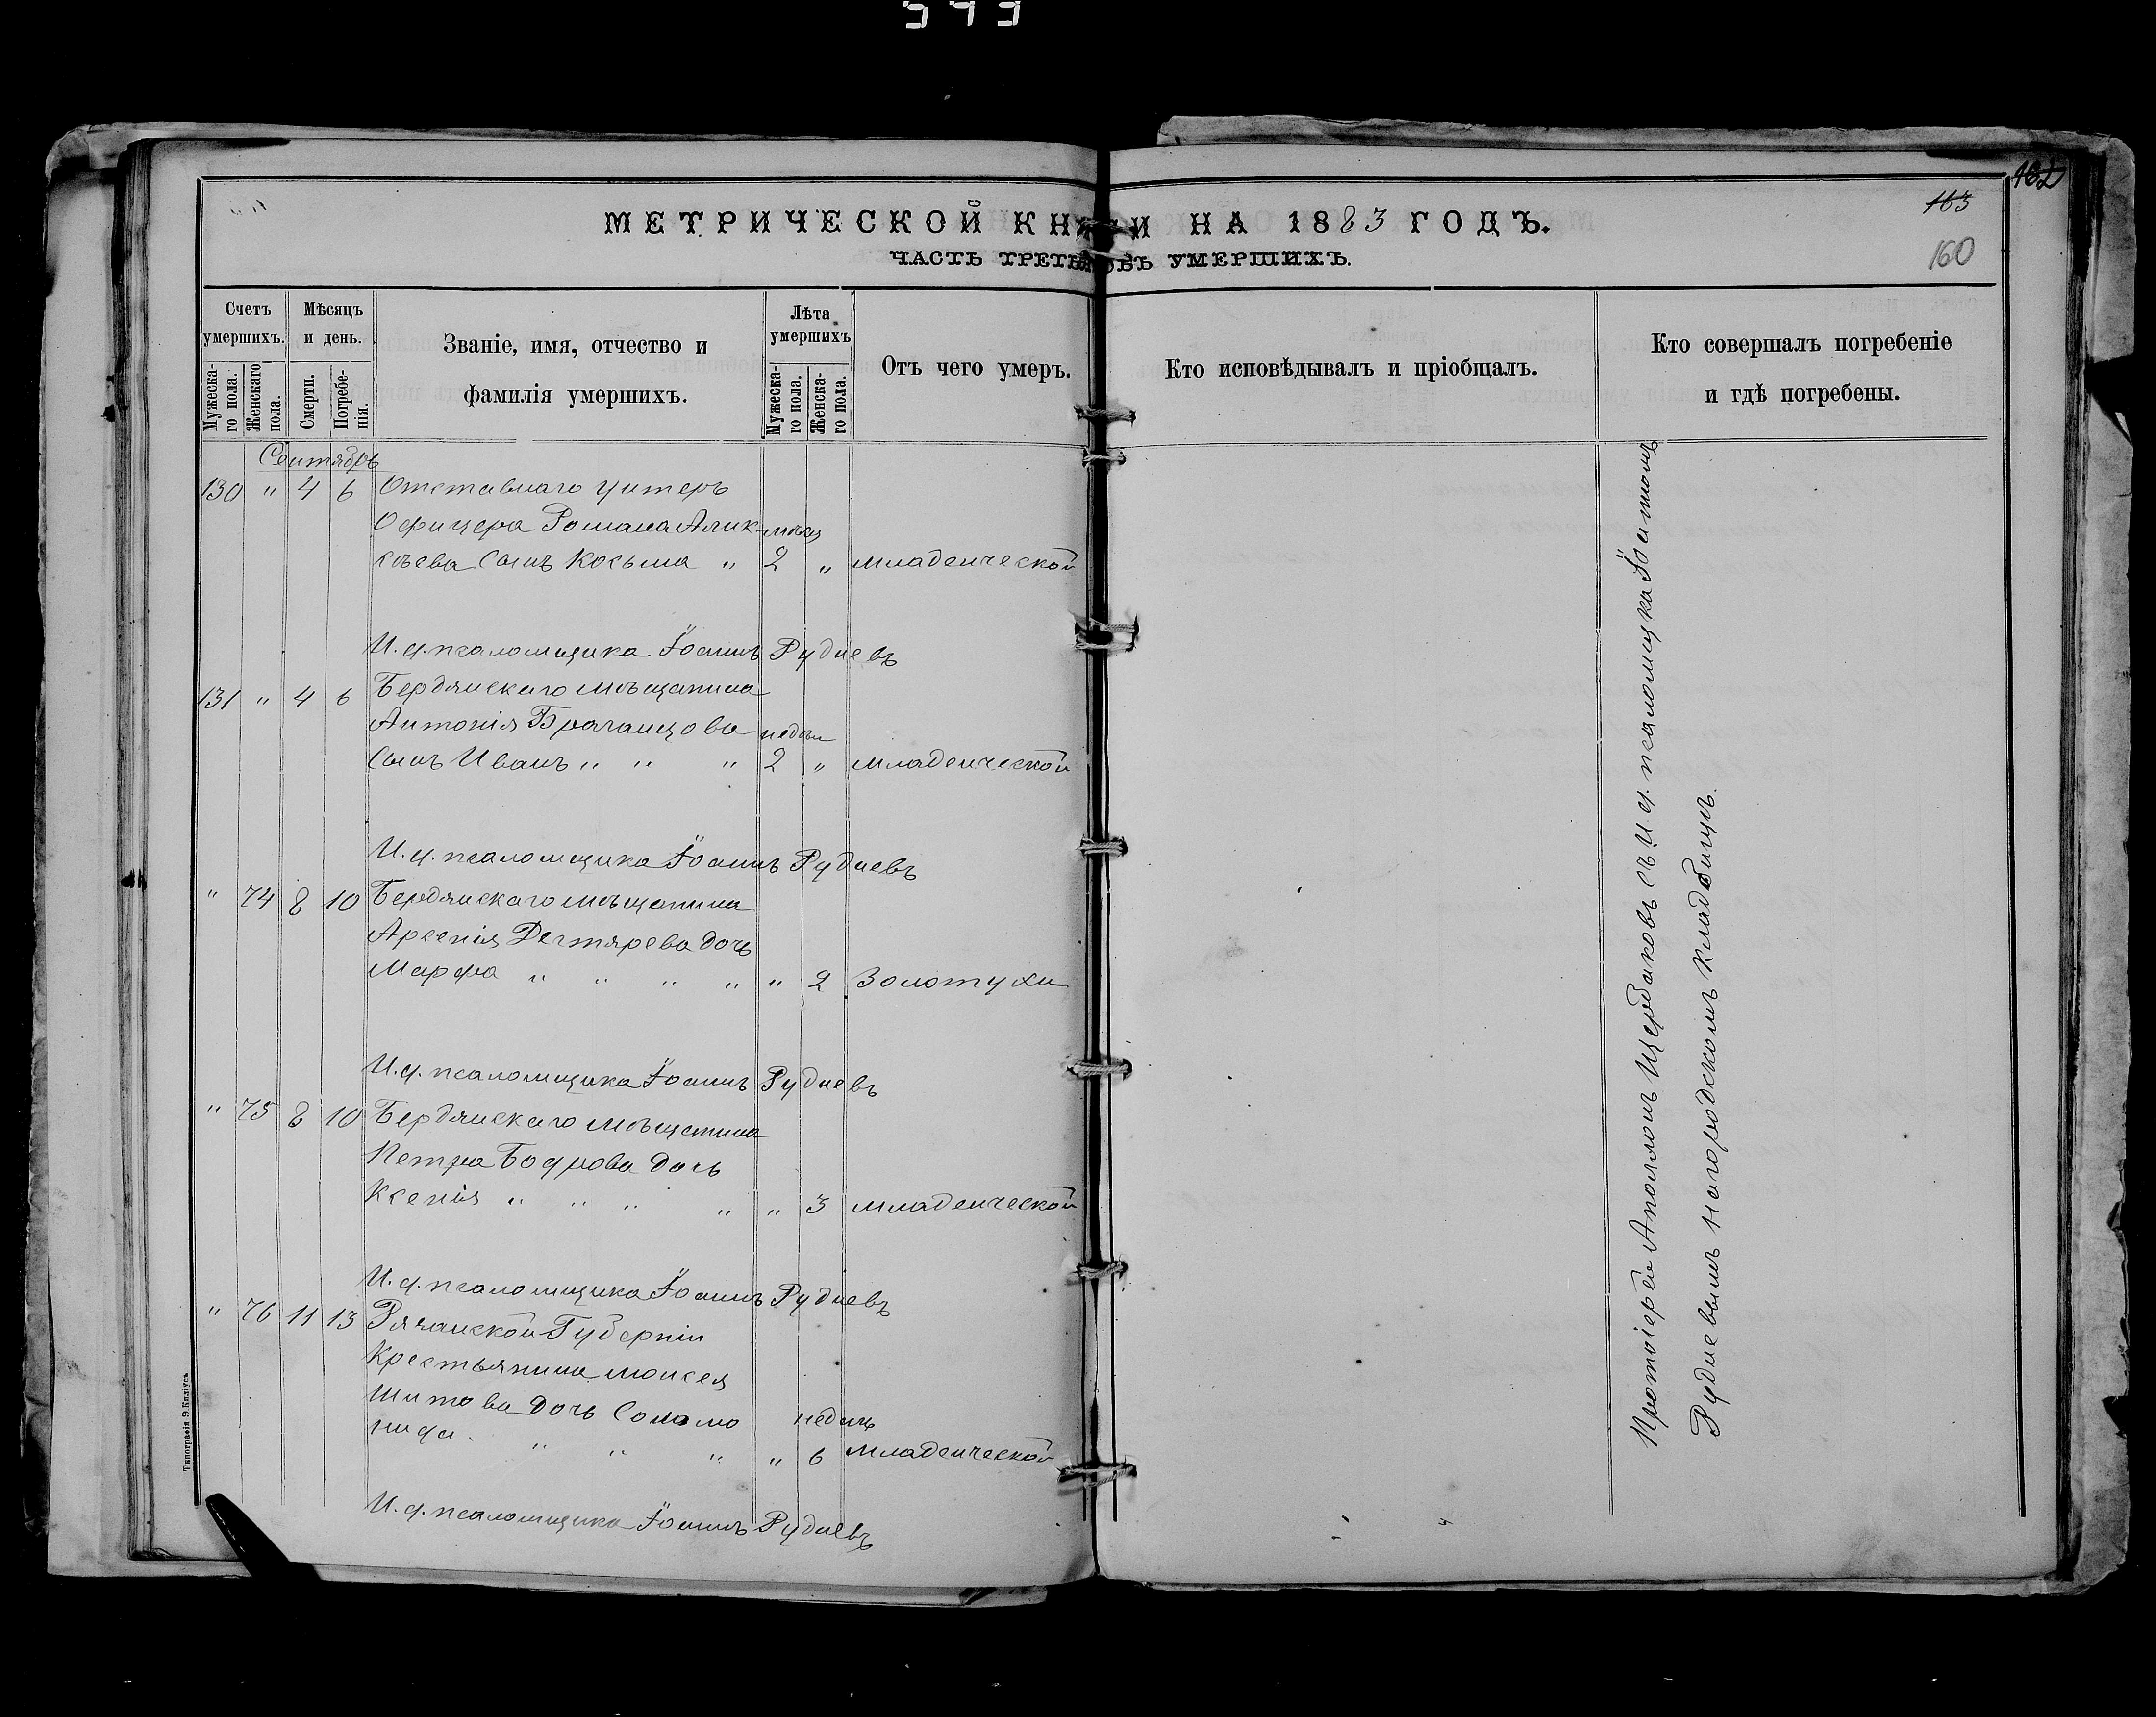 МЕТРИЧЕСКОЙ КНИГИ НА 1883 ГОДЪ.
ЧАСТЬ ТРЕТЬЯ ОБЪ УМЕРШИХЪ.
163
160
Счетъ умершихъ.
Мужеска-го пола.
Женскаго пола.
Мѣсяцъ и день.
Смерти.
Погребе-нія.
Званіе, имя, отчество и
фамилія умершихъ.
Лѣта умершихъ
Мужеска-го пола.
Женска-го пола.
Отъ чего умеръ.
Кто исповѣдывалъ и пріобщалъ.
Кто совершалъ погребеніе
и гдѣ погребены.
Сентябрь
130 " 4 6 Отставнаго Унтеръ
Офицера Романа Алик-
сѣева Сынъ Косьма " 2 " младенческой
И. д. псаломщика Іоаннъ Рудневъ
131 " 4 6 Бердянскаго мѣщанина
Антонія недѣли
Сынъ Иванъ " " " 2 " младенческой
И. д. псаломщика Іоаннъ Рудневъ
" 74 8 10 Бердянскаго мѣщанина
Арсенія Дегтярева дочь
Марфа " " " " " 2 Золотухи
И. д. псаломщика Іоаннъ Рудневъ
" 75 8 10 Бердянскаго мѣщанина
Петра дочь
Ксенія " " " " " 3 младенческой
И. д. псаломщика Іоаннъ Рудневъ
" 76 11 13 Рязанской Губерніи
Крестьянина Моисея
Шитова дочь Соломо недѣль
нида. " " " " 6 младенческой
И. д. псаломщика Іоаннъ Рудневъ
Протоіерей Аполлонъ Щербаковъ съ И. д. псаломщика Іоанномъ
Рудневымъ на городскомъ кладбищѣ.
Типографія Э Килiусъ